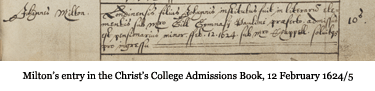 Johannes Milton.
Londinensis filius Johannis institutus fuit in literarum ele-
mentis sub Mro Gill Gymnasii Paulini praefecto admissus
est pensionarius minor Feb. 12. 1624 sub Mro Chappell solvitque
pro ingressu
10s
Milton's entry in the Christ's College Admissions Book, 12 February 1624/5